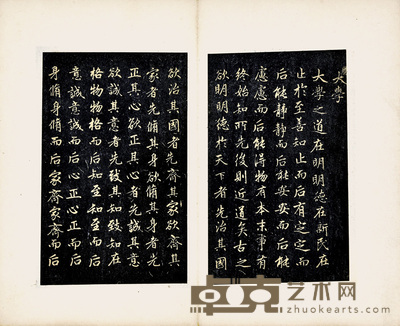 大學
大學之道在明明德在新民在
止於至善知止而后有定定而
后能靜靜而后能安安而后能
慮慮而后能得物有本末事有
終始知所先後則近道矣古之
欲明明德於天下者先治其國
欲治其國者先齊其家欲齊其
家者先脩其身欲脩其身者先
正其心欲正其心者先誠其意
欲誠其意者先致其知致知在
格物物格而后知至知至而后
意誠意誠而后心正心正而后
身脩身脩而后家齊家齊而后
卓克艺术网
www.zhuokearts.com